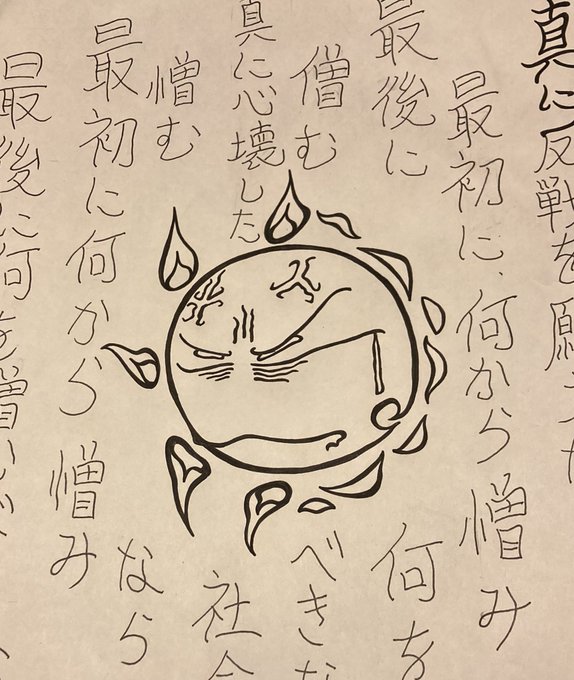 真に反戦を願
最初に、何から憎み
最後に何を
憎むべきな
真に心壊した社会
憎むなら
最初に何から憎み
最後に何を憎